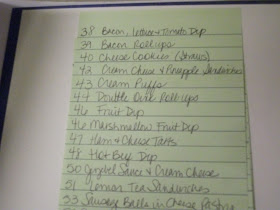 38 Bacon, Lettuce & Tomato Dip
39 Bacon Roll ups
40 Cheese Cookies (Straws)
42 Cream Cheese & Pineapple Sandwiches
43 Cream Puffs
44 Double Quik Roll ups
46 Fruit Dip
46 Marshmellow Fruit Dip
47 Ham & Cheese Tarts
48 Hot Beef Dip
50 Sauce & Cream Cheese
51 Lemon Tea Sandwiches
53 Sausage Balls in Cheese Pastry